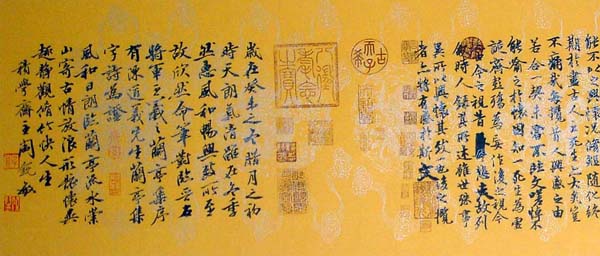 能不以之興懷況脩短隨化終
期於盡古人云死生亦大矣豈
不痛哉每攬昔人興感之由
若合一契未嘗不臨文嗟悼不
能喻之於懷固知一死生為虛
誕齊彭殤為妄作後之視今
亦由今之視昔悲夫故列
敘時人錄其所述雖世殊事
異所以興懷其致一也後之攬
者亦將有感於斯文
古稀天子
八徵耄念之寶
歲在癸未之冬腊月之初
時天朗氣清雖在冬季
然惠風和暢興致所至
故欣然命筆對臨晉右
將軍王羲之蘭亭集序
有陳道義先生蘭亭集
字詩為證
風和日朗臨蘭亭流水
山寄古情放浪形骸懷異
趣靜觀俯仰快人生
積學齋主閻銳敏